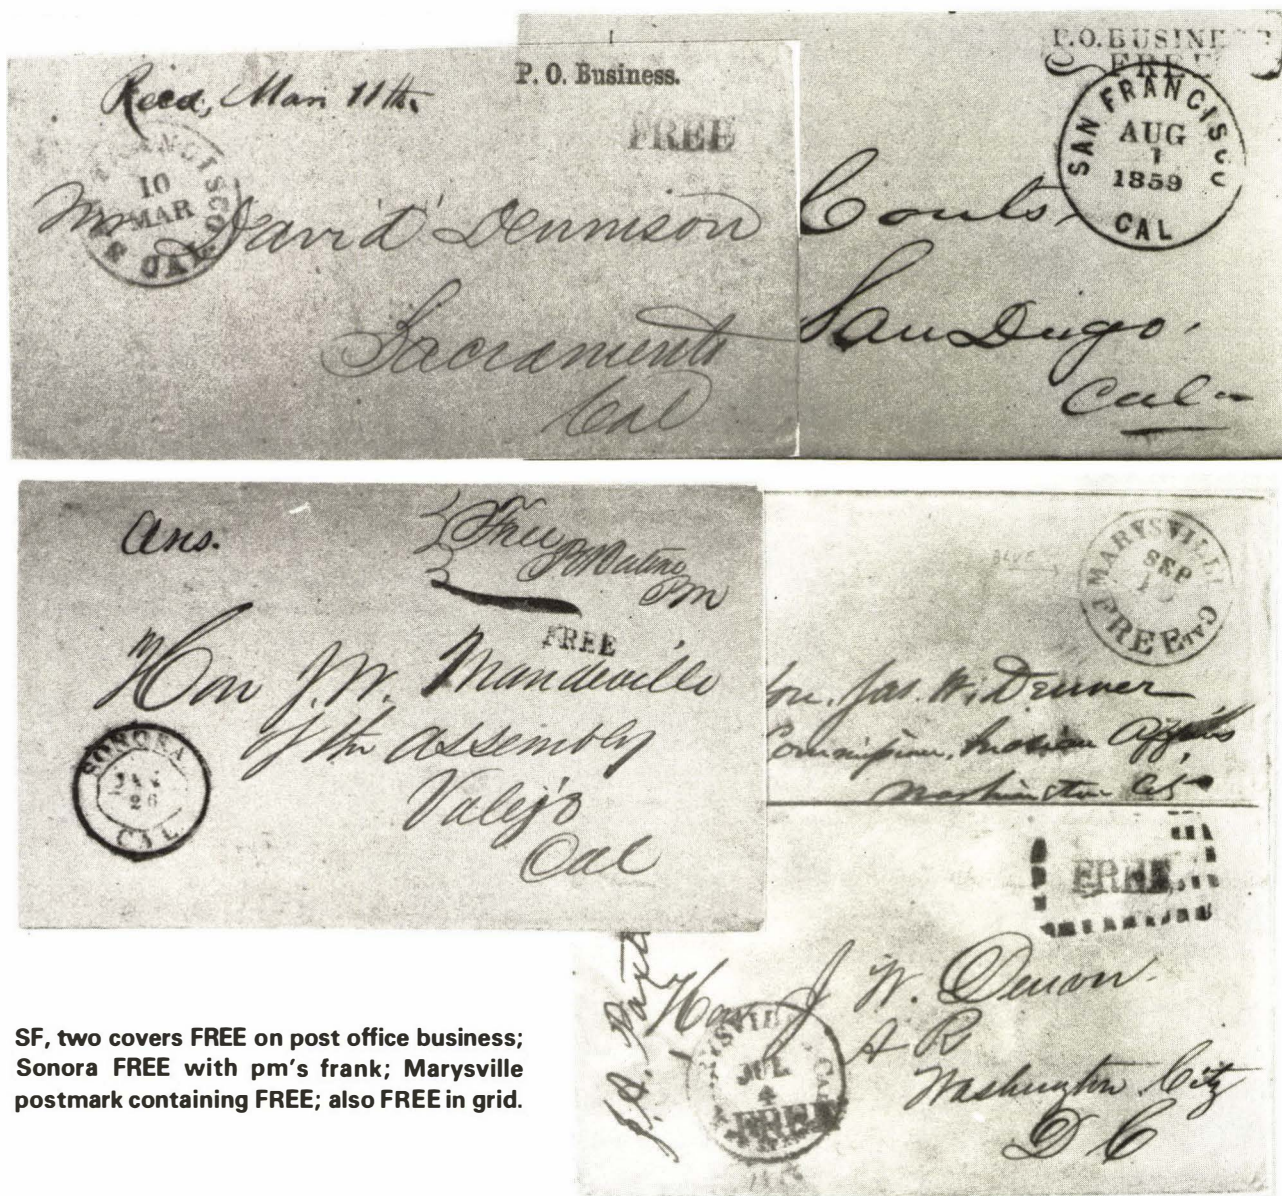 P. O. Business.
Recd, Mar 11th.
FREE
SAN FRANCISCO
10
MAR
CAL
Mr David Dennison
Sacramento
Cal
P.O. BUSINESS
FREE
SAN FRANCISCO
AUG
1
1859
CAL
Couts,
San Diego.
Cal
Ans.
Free
PM
FREE
Hon J. W. Mandeville
4th Assembly
Valejo
Cal
SONORA
JAN
26
CAL
BLUE
MARYSVILLE
SEP
CAL
FREE
Hon. Jas. W. Denver
Indian Affairs
Washington City
FREE
Hon J W.
H R
Washington City
D C
MARYSVILLE CAL
JUL
4
FREE
SF, two covers FREE on post office business;
Sonora FREE with pm's frank; Marysville
postmark containing FREE; also FREE in grid.